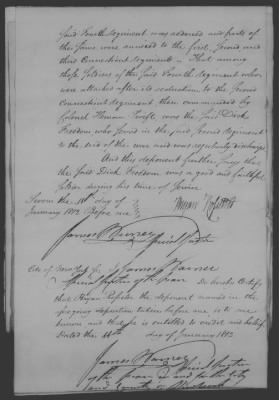 said Fourth Regiment was reduced and parts of
the same were annexed to the first, second and
third Connecticut Regiments – That among
those Soldiers of the said Fourth Regiment who
were attached after its reduction to the second
Connecticut Regiment then commanded by
Colonel Heman Swift was the said Dick
Freedom who served in the said second Regiment
to the end of the war and was regularly discharged
And this deponent further says that
the said Dick Freedom was a good and faithful
Soldier during his time of service
Sworn the day of
January 1812 Before me
James Warner
City of New York ss I James Warner
do hereby Certify
that the deponent named in the
foregoing deposition taken before me is to me
known and that he is entitled to credit and belief
Dated the day of January 1812
James Warner
of the peace in and for the City
and County of